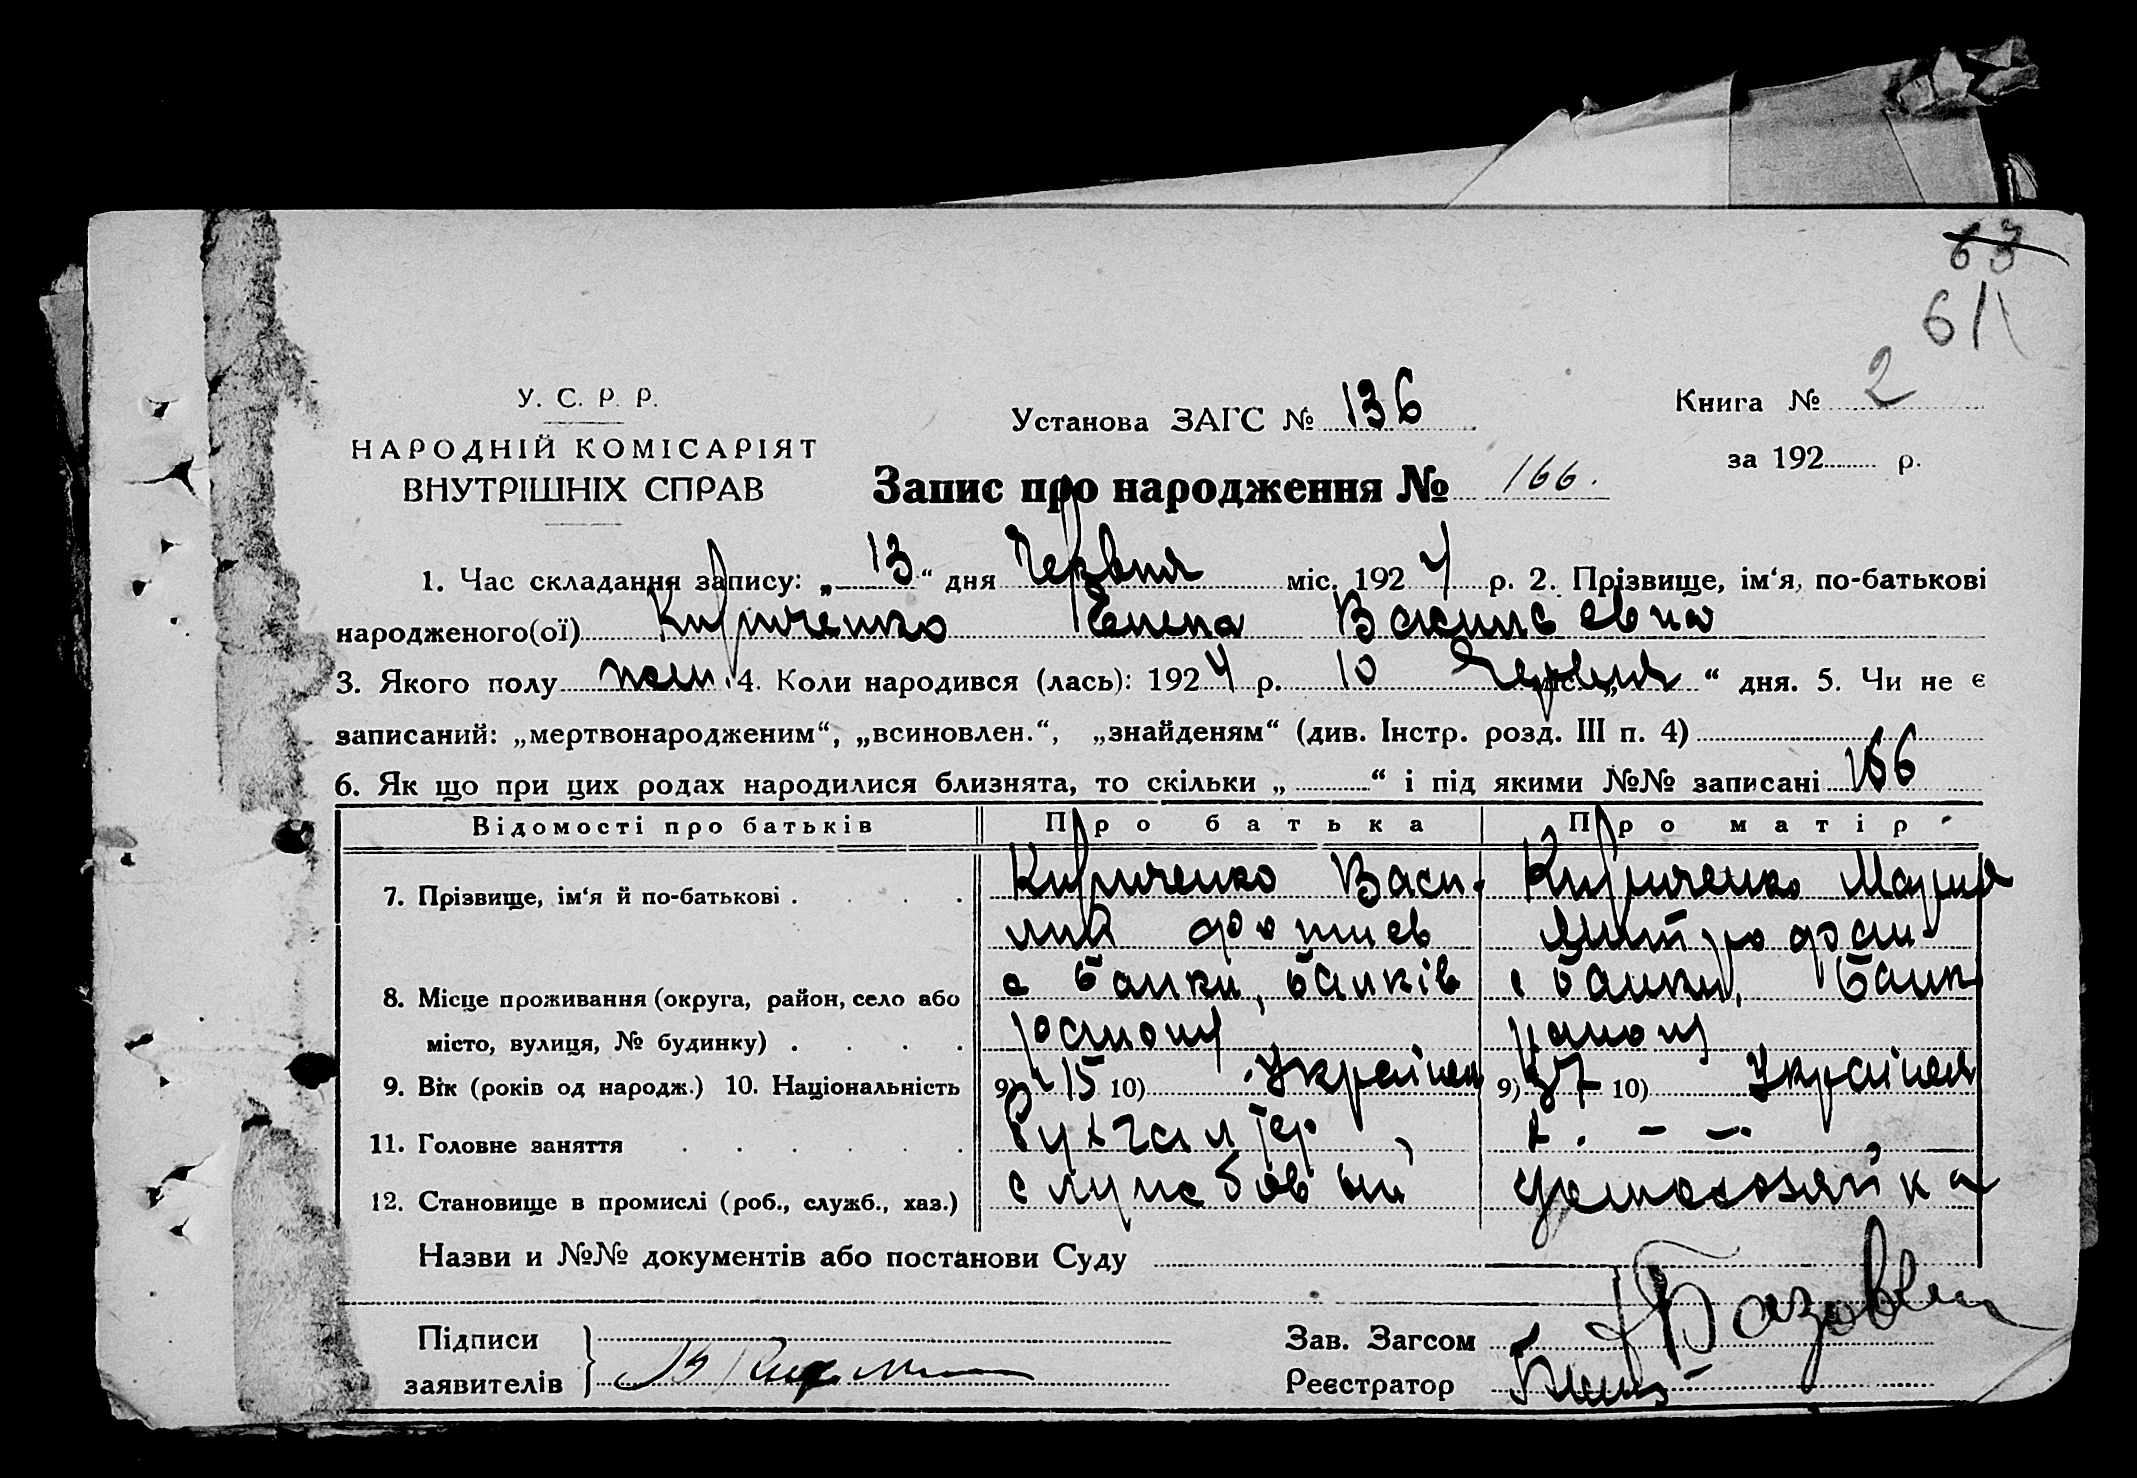 63
61
У. С. Р. Р.
НАРОДНІЙ КОМІСАРІЯТ
ВНУТРІШНІХ СПРАВ
Установа ЗАГС № 136
Книга № 2
за 192 р.
Запис про народження № 166.
1. Час складання запису: „ 13 “ дня Червня міс. 1924 р. 2. Прізвище, ім‘я, по-батькові
народженого(ої) Кириченко Елена Васильевна
3. Якого полу жен. 4. Коли народився (лась): 1924 р. 10 Червня міс. „ “ дня. 5. Чи не є
записаний: „мертвонародженим“, „всиновлен.“, „знайденям“ (див. Інстр. розд. III п. 4)
6. Як що при цих родах народилися близнята, то скільки „ “ і під якими №№ записані 166
Відомості про батьків Про батька Про матір
7. Прізвище, ім‘я й по-батькові . . . . Кириченко Васи- Кириченко Мария
лий фотиев Митрофан
8. Місце проживання (округа, район, село або с Банки, банків с Банки, Банк
місто, вулиця, № будинку) . . . . району району
9. Вік (років од народж.) 10. Національність 9) 45 10) Україней 9) 37 10) Україней
11. Головне заняття . . . . . Бухгалтер
12. Становище в промислі (роб., служб., хаз.) службов домохозяйка
Назви и №№ документів або постанови Суду
Підписи
заявителів
Зав. Загсом
Реєстратор